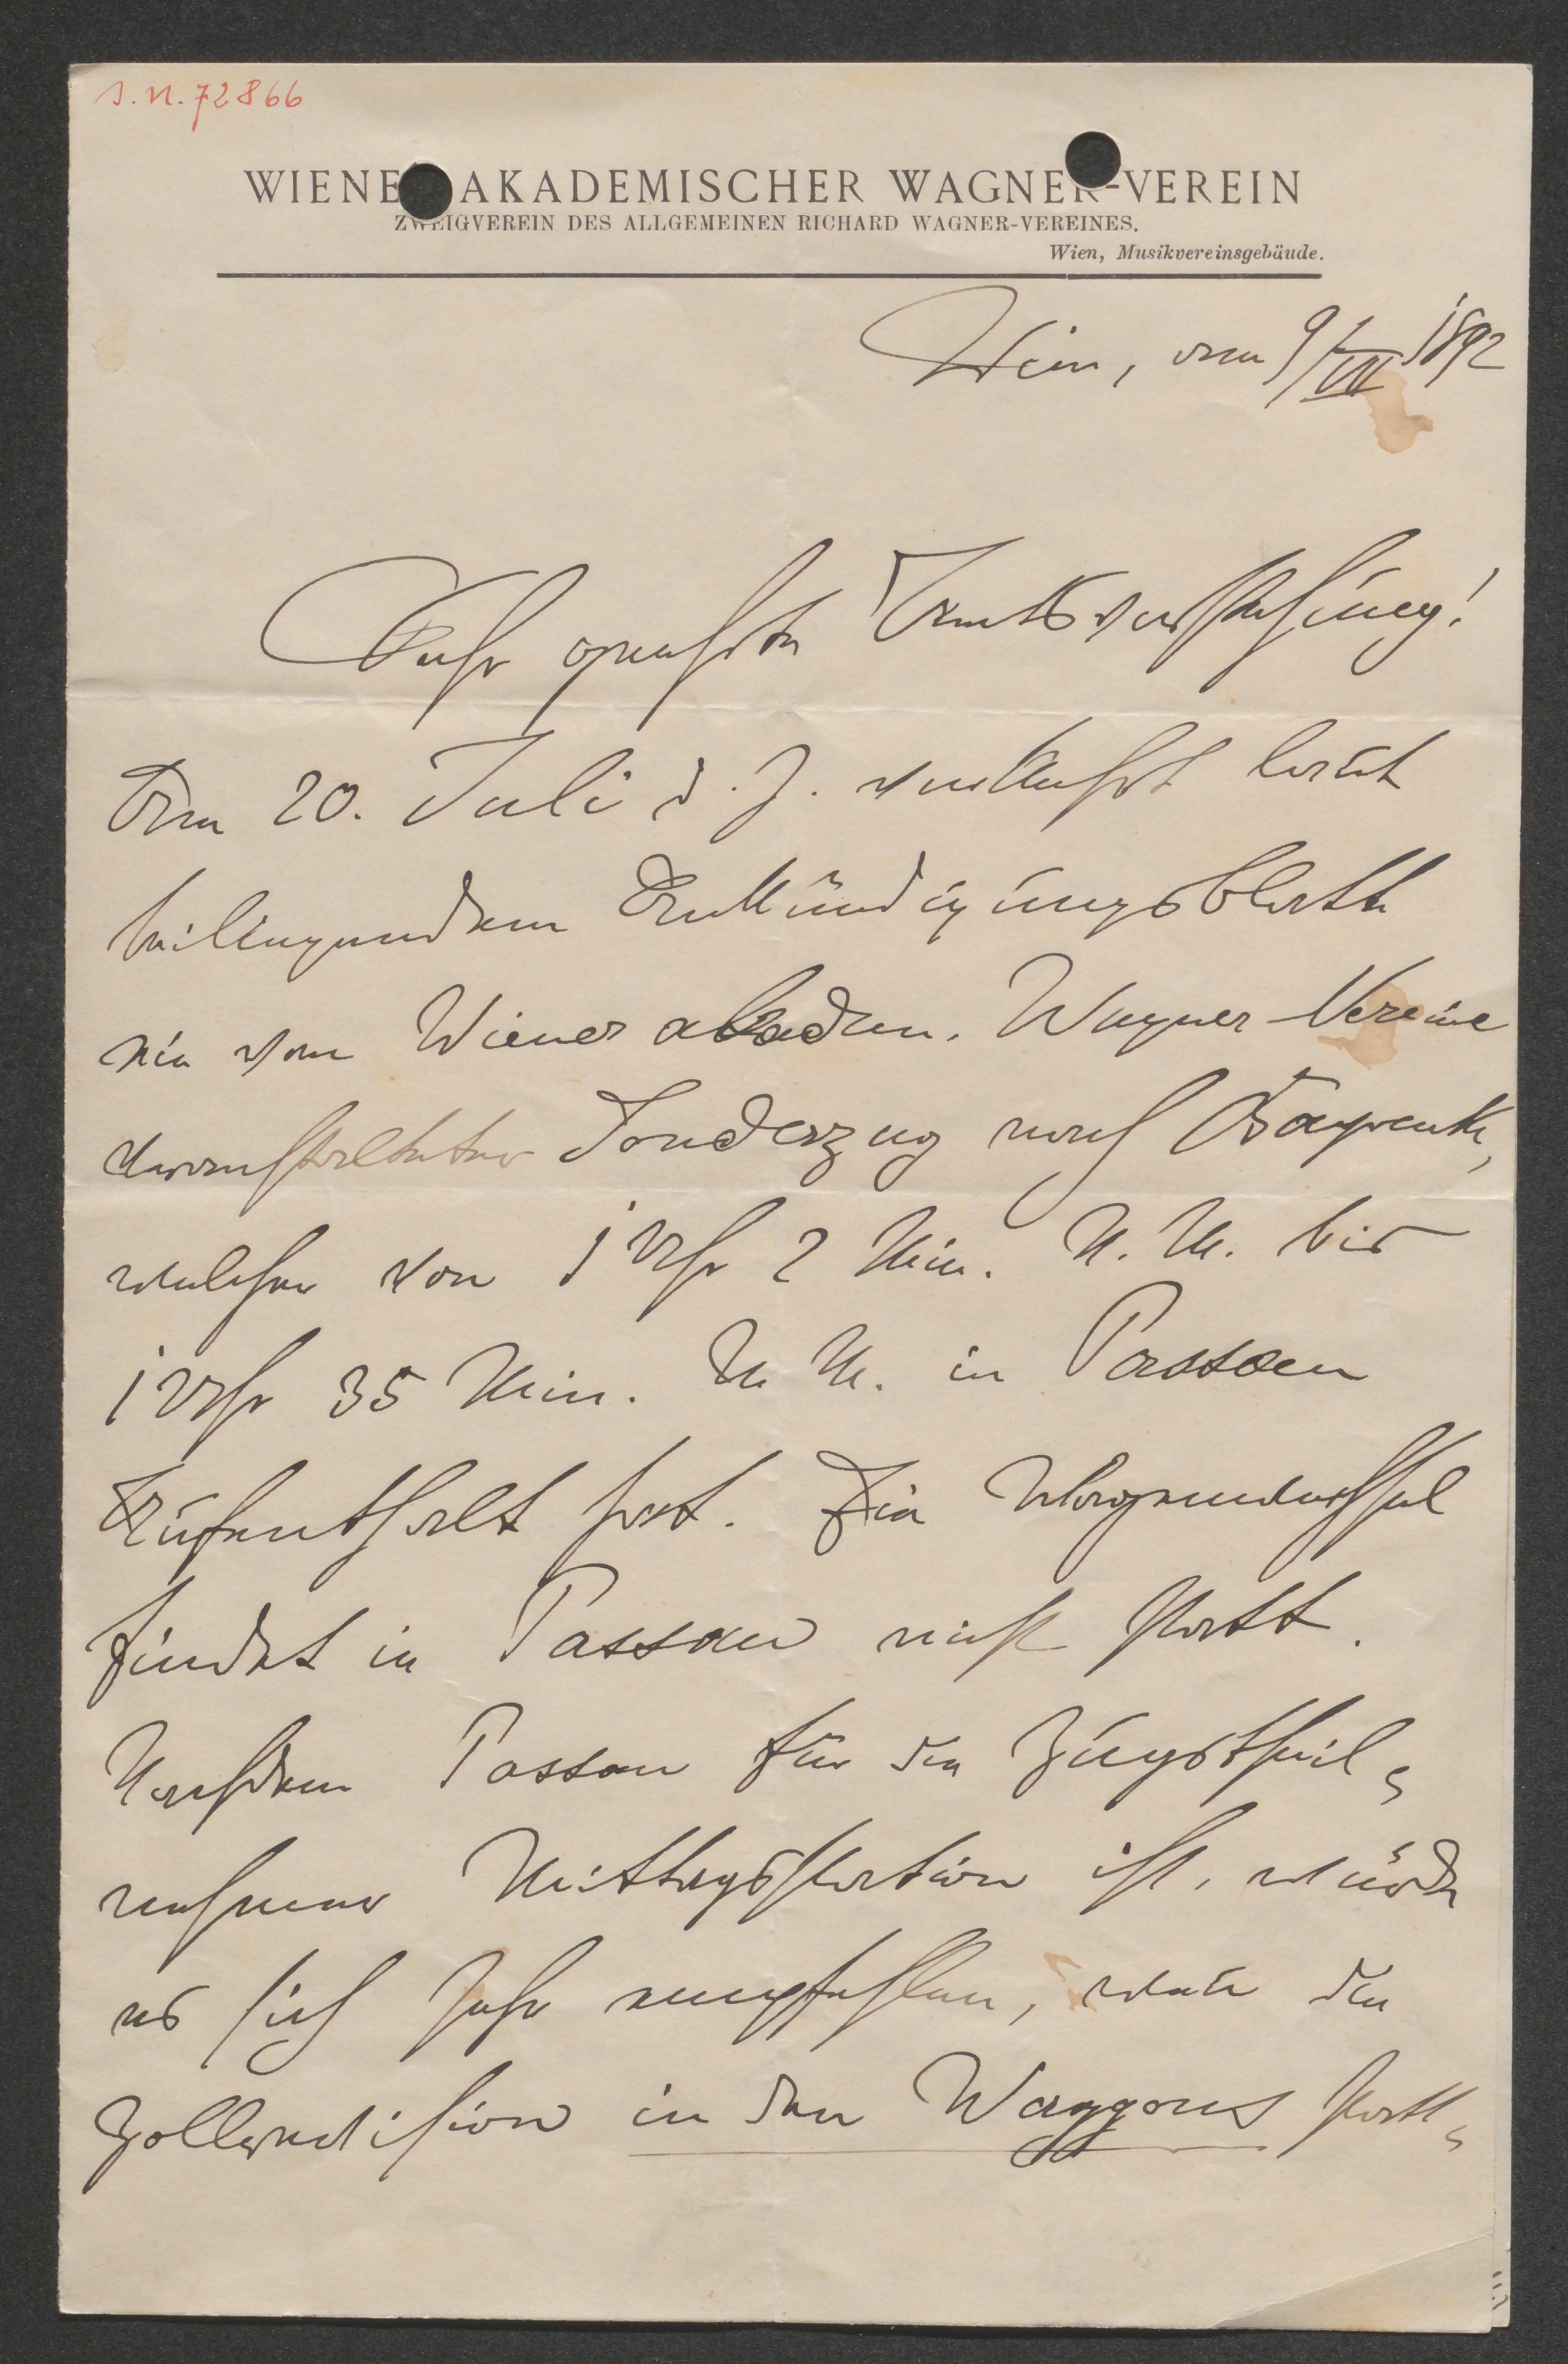 I.N. 72866
WIENER AKADEMISCHER WAGNER-VEREIN
ZWEIGVEREIN DES ALLGEMEINEN RICHARD WAGNER-VEREINES.
Wien, Musikvereinsgebäude.
Wien, am 9/VII 1892
Sehr geehrte Amtsvorstehung!
Am 20. Juli d. J. verkehrt laut
beiliegendem Ankündigungsblatte
ein vom Wiener akadem. Wagner-Vereine
veranstalteter Sonderzug nach Bayreuth,
welcher von 1 Uhr 2 Min. N. M. bis
1 Uhr 35 Min. N. M. in Passau
Aufenthalt hat. Ein Wagenwechsel
findet in Passau nicht statt.
Nachdem Passau für die Zugstheil-
nehmer Mittagsstation ist, würde
es sich sehr empfehlen, wenn die
Zollrevision in den Waggons statt-